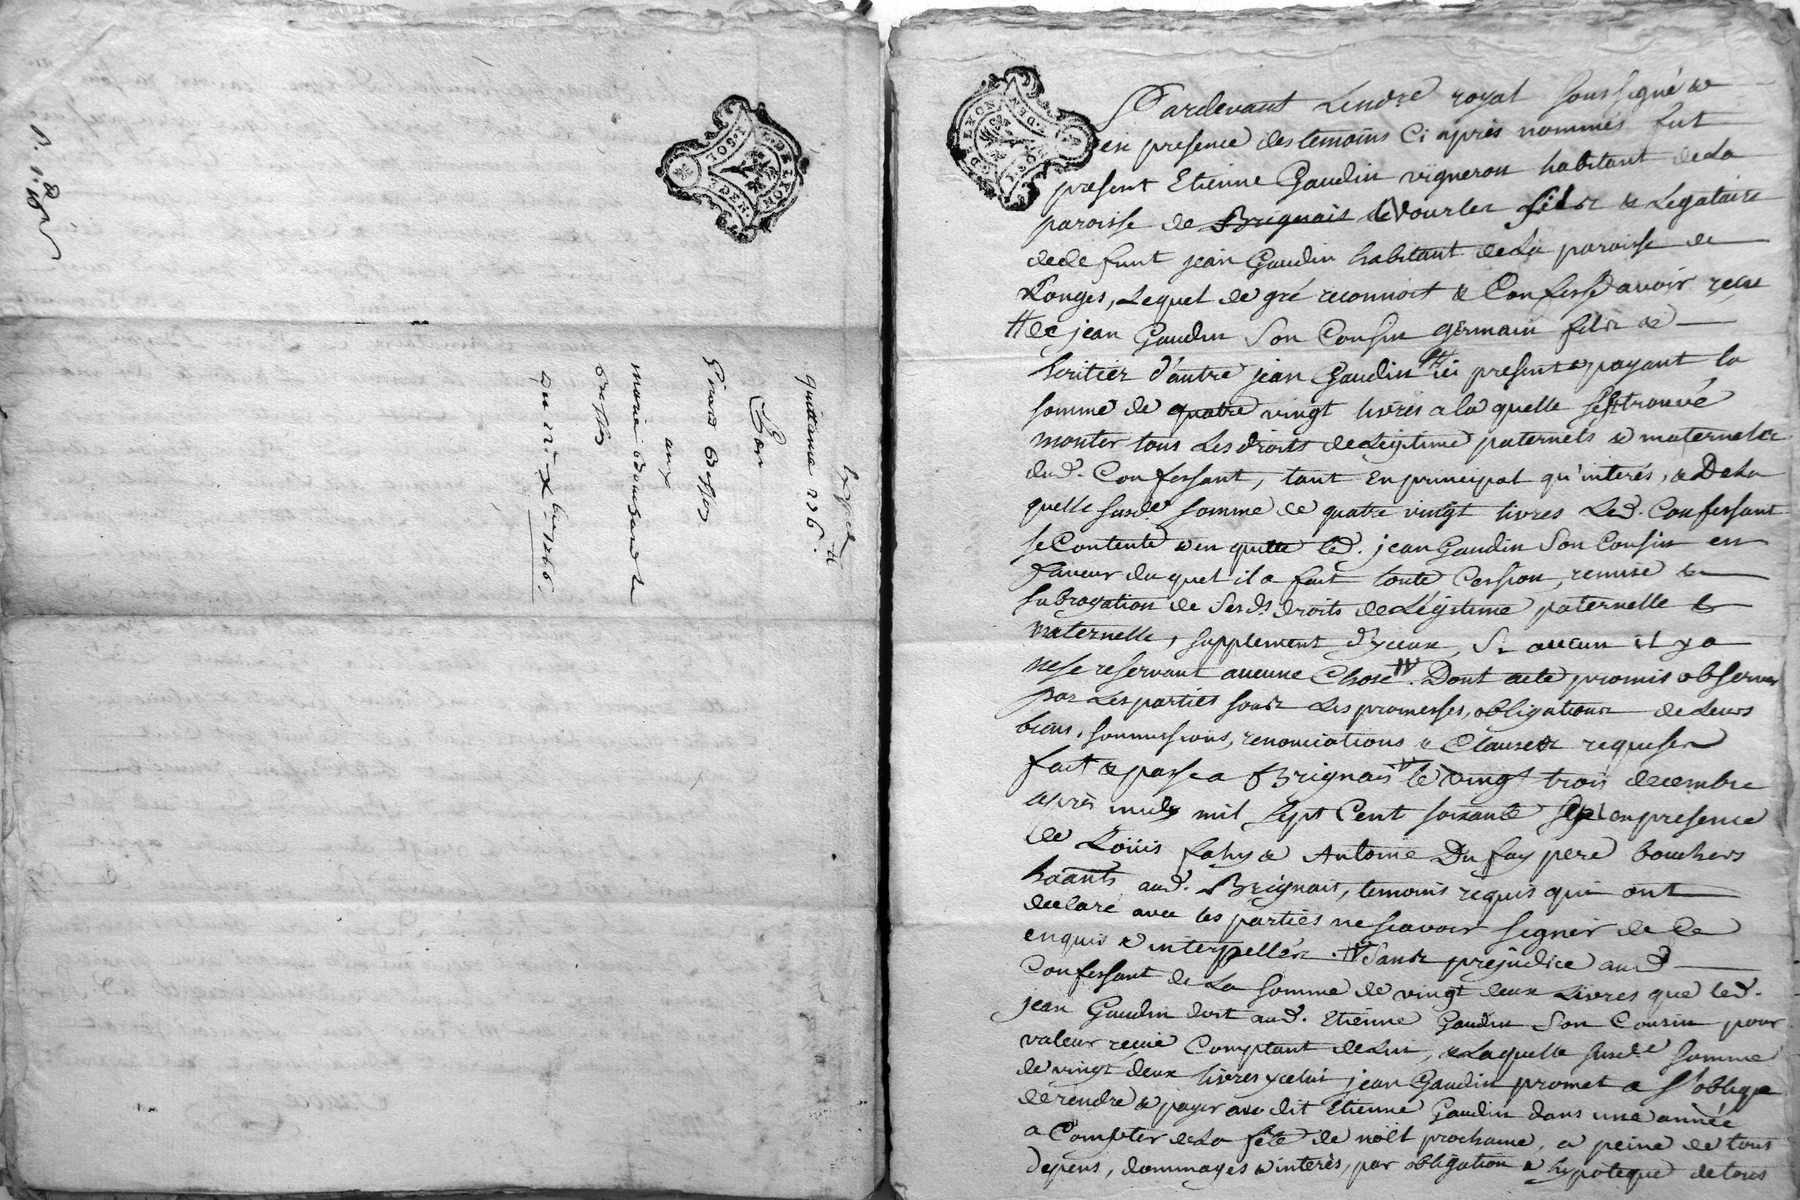 quittance 226.
Pour
Girard
aux
marie
GEN. DE LYON
1. SOL
GEN. DE LYON
Pardevant Lenore royal soussigné &
en presence des temoins Ci après nommés fut
present Etienne Gaudin vigneron habitant de La
paroisse de Brignais de Vourles fils & Legataire
de defunt jean Gaudin habitant de La paroisse de
Longes, Lequel de gré reconnoit & Confesse avoir reçu
de jean Gaudin Son Cousin germain fils &
heritier d'autre jean Gaudin ici present & payant la
somme de quatre vingt livres a la quelle s'est trouvé
monter tous Les droits de Legitime paternels & maternels
dud. Confessant, tant en principal qu'interés, & De La
quelle susd.e somme de quatre vingt livres Led. Confessant
se Contente & en quitte led. jean Gaudin Son Cousin en
faveur du quel il a fait toute Cession, remise &
subrogation de Sesd. droits de Légitime paternelle &
maternelle, supplement d'yceux, Si aucun il y a
ne se reservant aucune Chose. Dont acte promis observer
par Les parties sous Les promesses, obligations de Leurs
biens, soumissions, renonciations & Clauses requises
fait & passé a Brignais le vingt trois decembre
après midy mil Sept Cent soixante sept en presence
de Loüis fahy & Antoine Du fay pere bouchers
hãants aud. Brignais, temoins requis qui ont
declaré avec les parties ne sçavoir signer de Ce
enquis & interpellés. Sans prejudice aud.
Confessant de La somme de vingt deux Livres que led.
jean Gaudin doit aud. Etienne Gaudin Son Cousin pour
valeur reçüe Comptant de Lui, & Laquelle susd.e somme
de vingt deux livres ycelui jean Gaudin promet & s'oblige
de rendre & payer audit Etienne Gaudin dans une année
a Compter de La fête de noël prochaine, a peine de tous
depens, dommages & interès, par obligation & hypoteque de tous